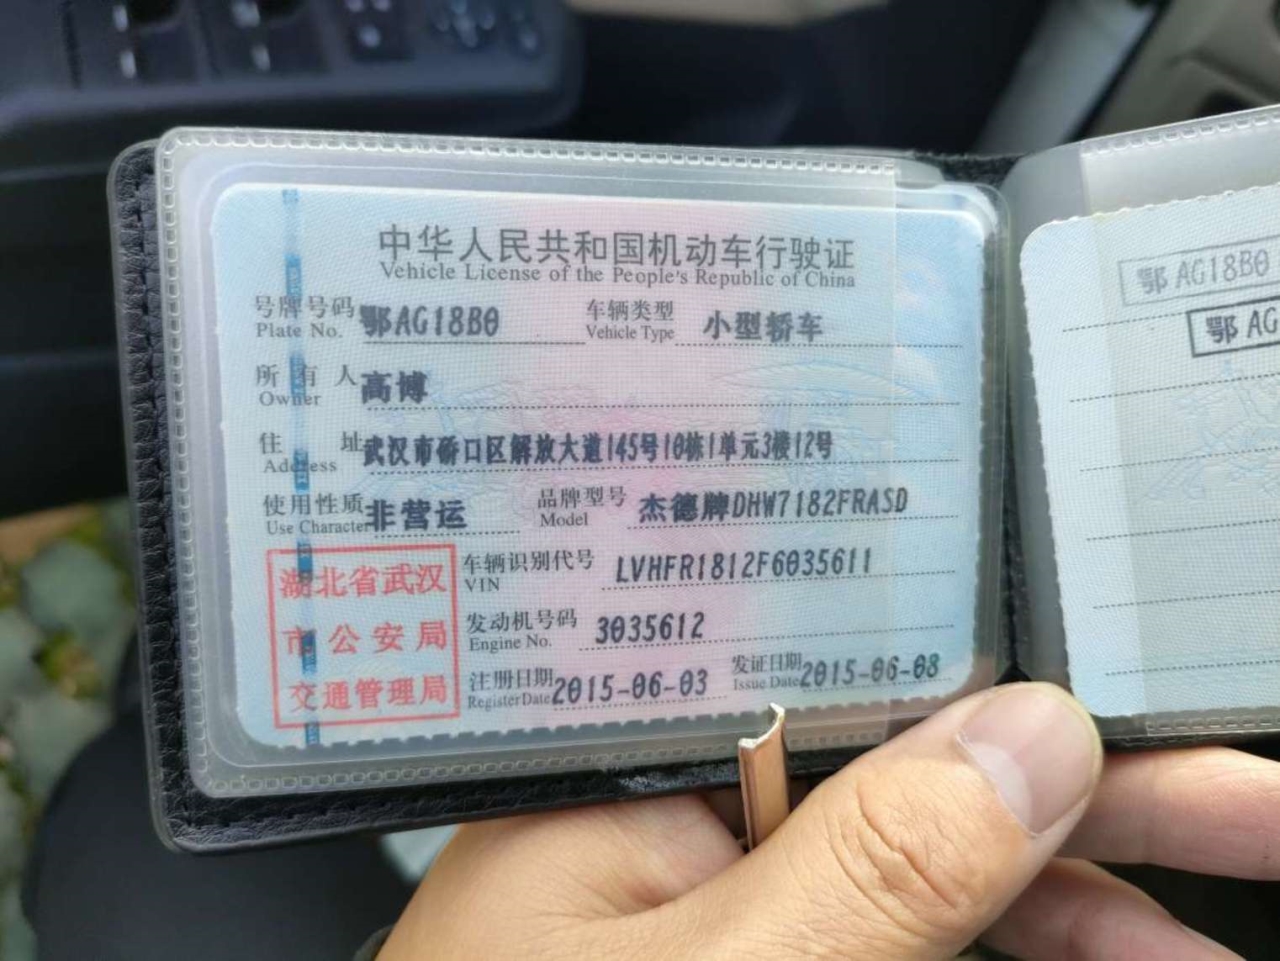 中华人民共和国机动车行驶证
Vehicle License of the People's Republic of China
号牌号码 鄂AG18B0 车辆类型 小型轿车
Plate No. Vehicle Type
所有人 高博
Owner
住址 武汉市硚口区解放大道145号10栋1单元3楼12号
Address
使用性质 非营运 品牌型号 杰德牌DHW7182FRASD
Use Character Model
湖北省武汉
市公安局
交通管理局
车辆识别代号 LVHFR1812F6035611
VIN
发动机号码 3035612
Engine No.
注册日期 2015-06-03 发证日期 2015-06-08
Register Date Issue Date
鄂AG18B0
鄂AG